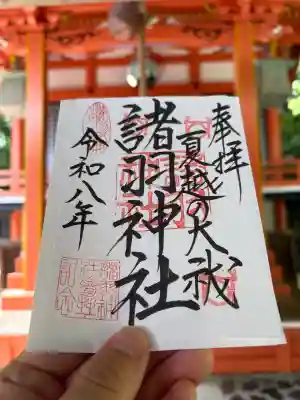 奉拝
夏越の大祓
諸羽神社
令和八年